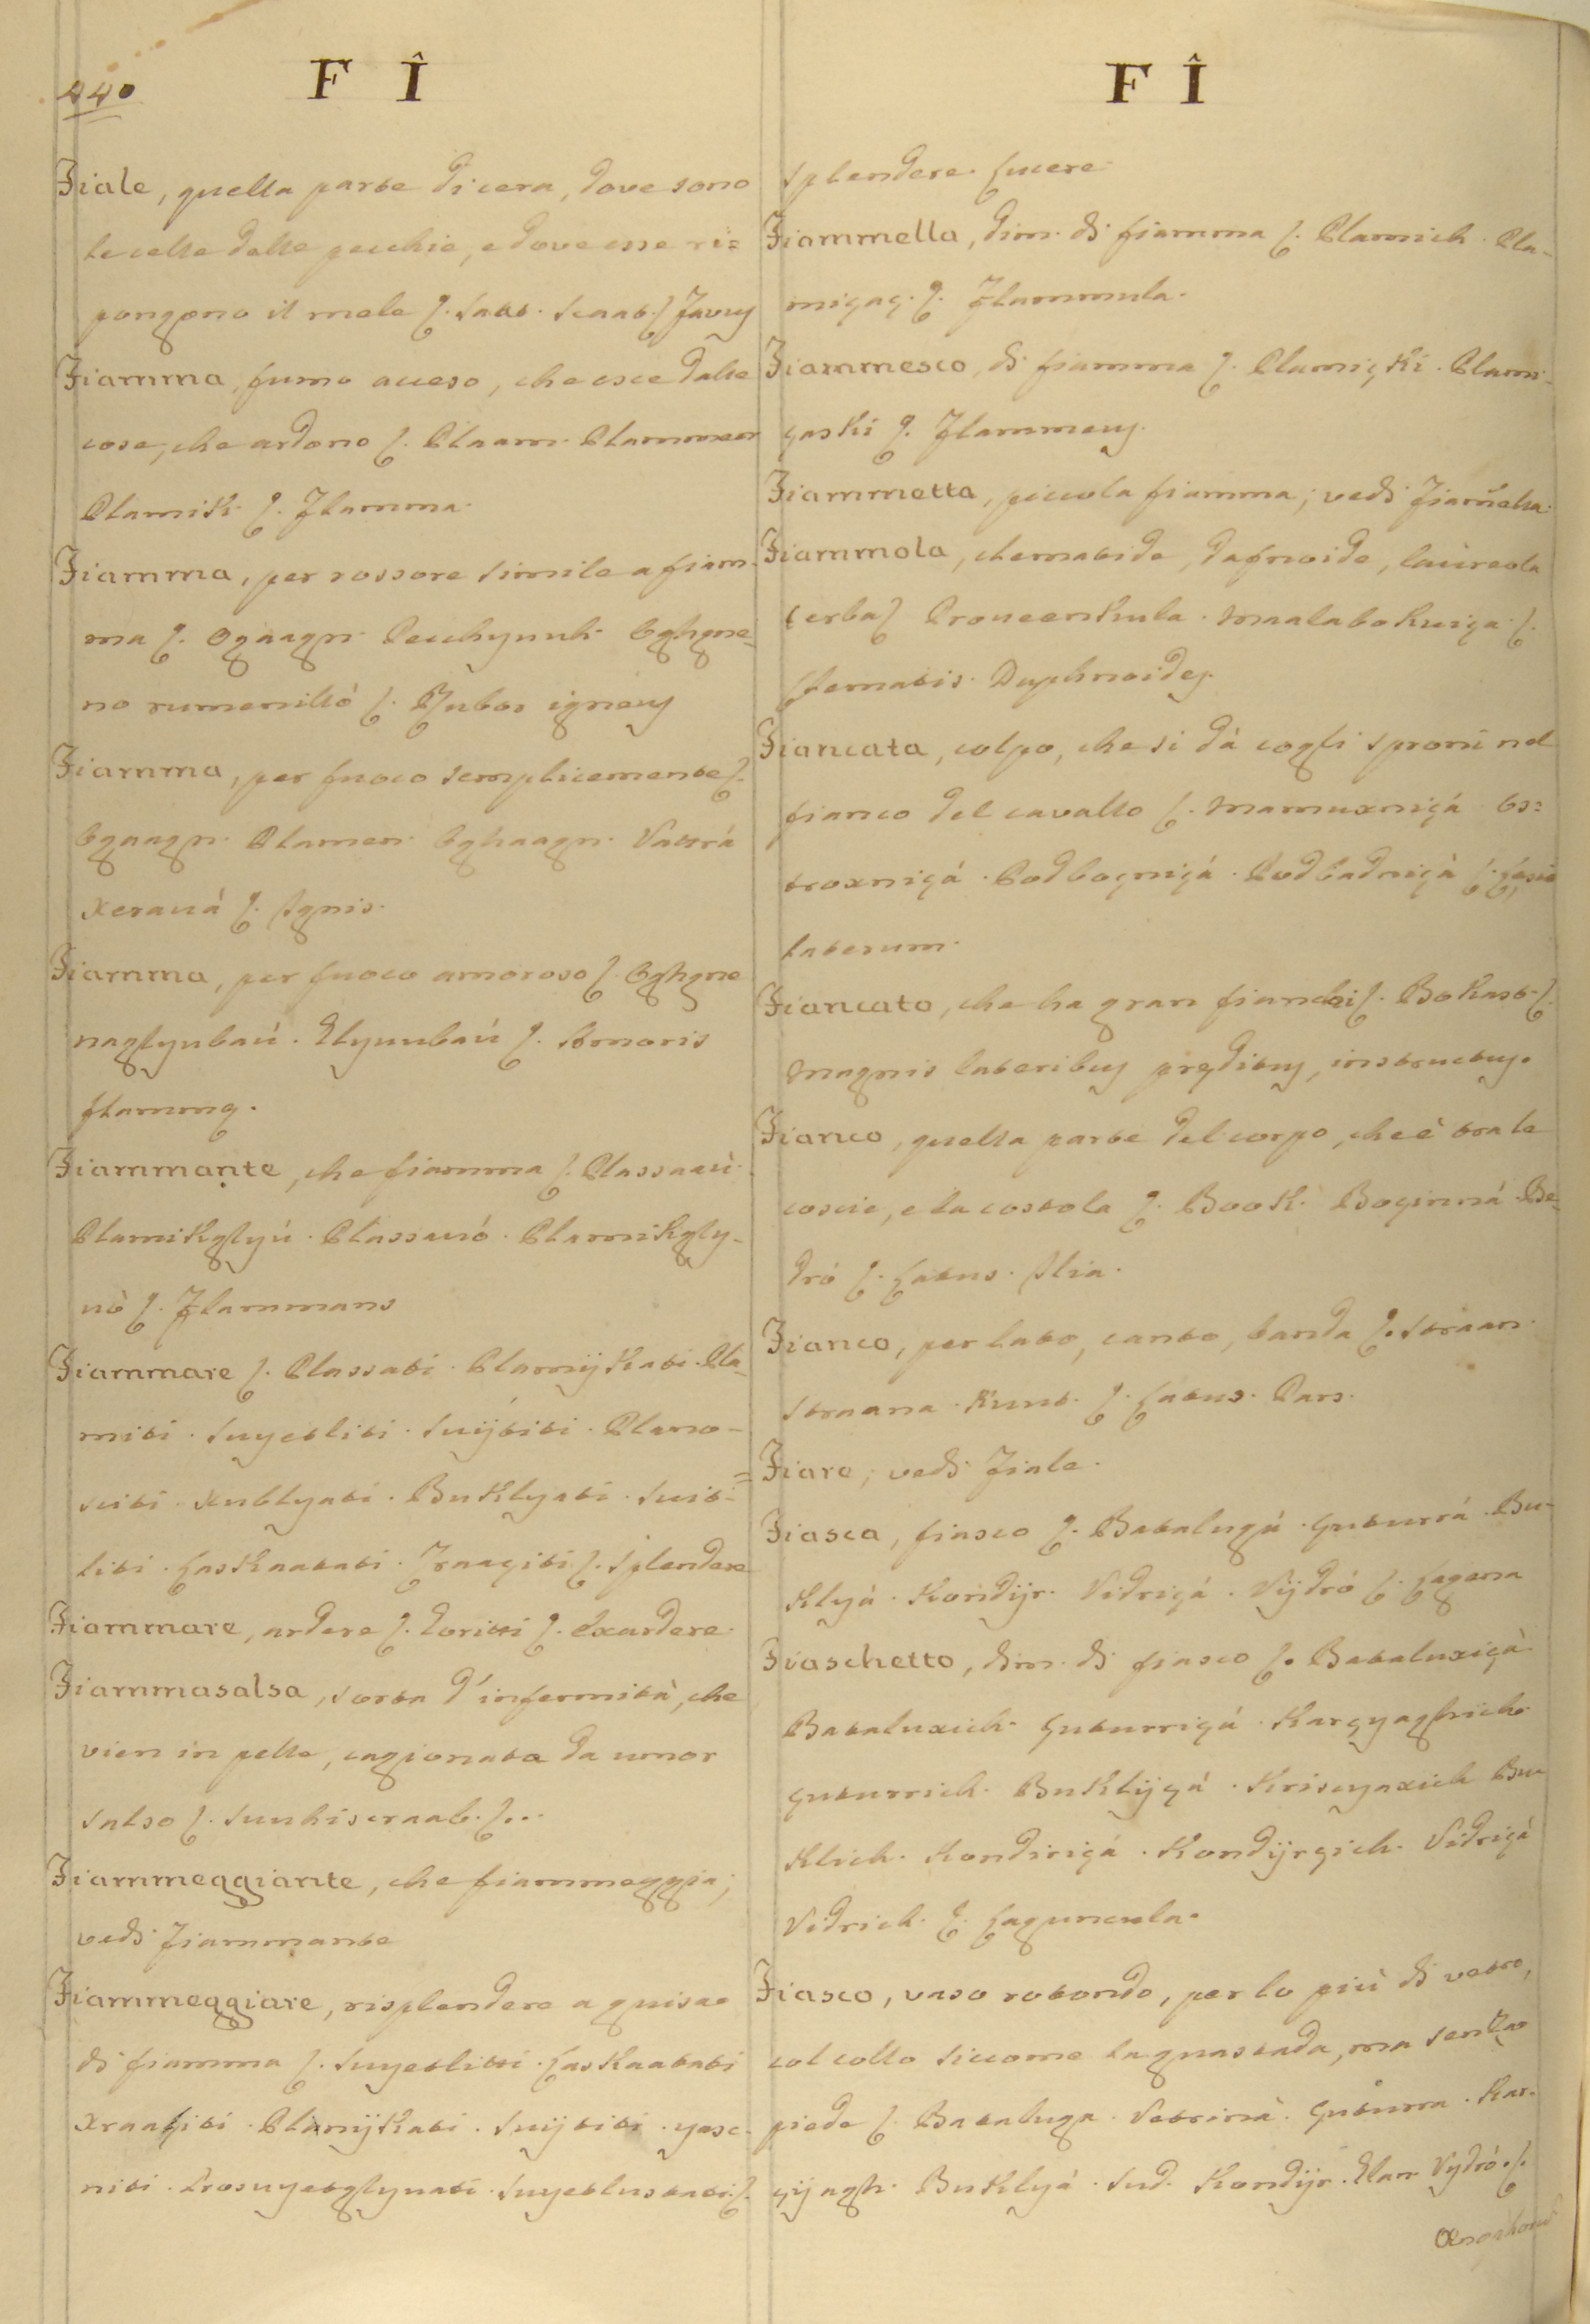 440
F Î
Fiale, quella parte di cera, dove sono
le celle delle pecchie, e dove esse ri=
pongono il mele ʃ. Saat. Scaat. ʃ Favus
Fiamma, fumo acceso, che esce dalle
cose, che ardono ʃ. Plaam. Plammen
Plamik ʃ. Flamma.
Fiamma, per rossore simile a fiam-
ma ʃ. Ogaagn. Pecchyuuh. Oghgne-
no rumenillo ʃ. Rubor igneus
Fiamma, per fuoco semplicemente ʃ.
Ogaagn. Plamen. Oghaagn. Vattrá
Xerauá ʃ. Ignis.
Fiamma, per fuoco amoroso ʃ. Oghgne
naglyubaú. Elyuubaú ʃ. Amoris
flammę.
Fiammante, che fiamma ʃ. Plassaaù.
Plamikglyú. Plassauó. Plamikgly-
uò ʃ. Flammans
Fiammare ʃ. Plassati. Plamijkati. Pla-
miti. Suyetliti. Suijtiti. Plamo-
sciti. Xublyati. Buklyati. Suit=
liti. Laskaatati. Zraaçiti ʃ. Splendere
Fiammare, ardere ʃ. Goritti ʃ. Exardere.
Fiammasalsa, sorta d'infermità, che
vien in pelle, cagionata da umor
salso ʃ. Suuhiscraab. ʃ...
Fiammeggiante, che fiammeggia;
vedi Fiammante
Fiammeggiare, risplendere a guisa
di fiamma ʃ. Suyetlitti. Laskaatati
Xraaçiti. Plamijkati. Suijtiti. yasc-
niti. Prosuyetglyuati. Suyetlustati. ʃ.
F Î
Splendere. Lucere.
Fiammella, dim. di fiamma ʃ. Plamich. Pla-
miçaç. ʃ. Flammula.
Fiammesco, di fiamma ʃ. Plamiçki. Plami-
çaski ʃ. Flammeus.
Fiammetta, piccola fiamma; vedi Fiam̃ella.
Fiammola, clematide, dafnoide, laureola
erba ʃ Proueenkula. Maalabokuiça ʃ.
Clematis. Daphnoides.
Fiancata, colpo, che si dá cogli sproni nel
fianco del cavallo ʃ. Mamuxniçá Os=
troxniçá. Podbogniçá. Podbadniçà ʃ. Lęsio
laterum.
Fiancato, che ha gran fianchi ʃ. Bokast. ʃ.
Magnis lateribus pręditus, instructus.
Fianco, quella parte del corpo, che è tra le
coscie, e la costola ʃ. Book. Boçinná. Be-
dró ʃ. Latus. Ilia.
Fianco, per lato, canto, banda ʃ. Straan.
Straana. Kunt. ʃ. Latus. Pars.
Fiare, vedi Fiale.
Fiasca, fiasco ʃ. Batalugá. Guturrá. Bu-
klyá. Kondijr. Vidriçá. Vijdró ʃ. Lagena
Fiaschetto, dim. di fiasco ʃ. Bataluxiçà
Bataluxich. Guturriçá. Karçyaghich.
Guturrich. Buklijçá. Kriscyaxich Bu-
klich. Kondiriçá. Kondijrçich. Vidriçà
Vidrich. ʃ. Laguncula.
Fiasco, vaso rotondo, per lo più di vetro,
col collo siccome la guastada, ma senza
piede ʃ. Bataluga. Vetrinà. Guturra. Kar-
çijagh. Buklyá. Sud. Kondijr. Elan Vydró. ʃ.